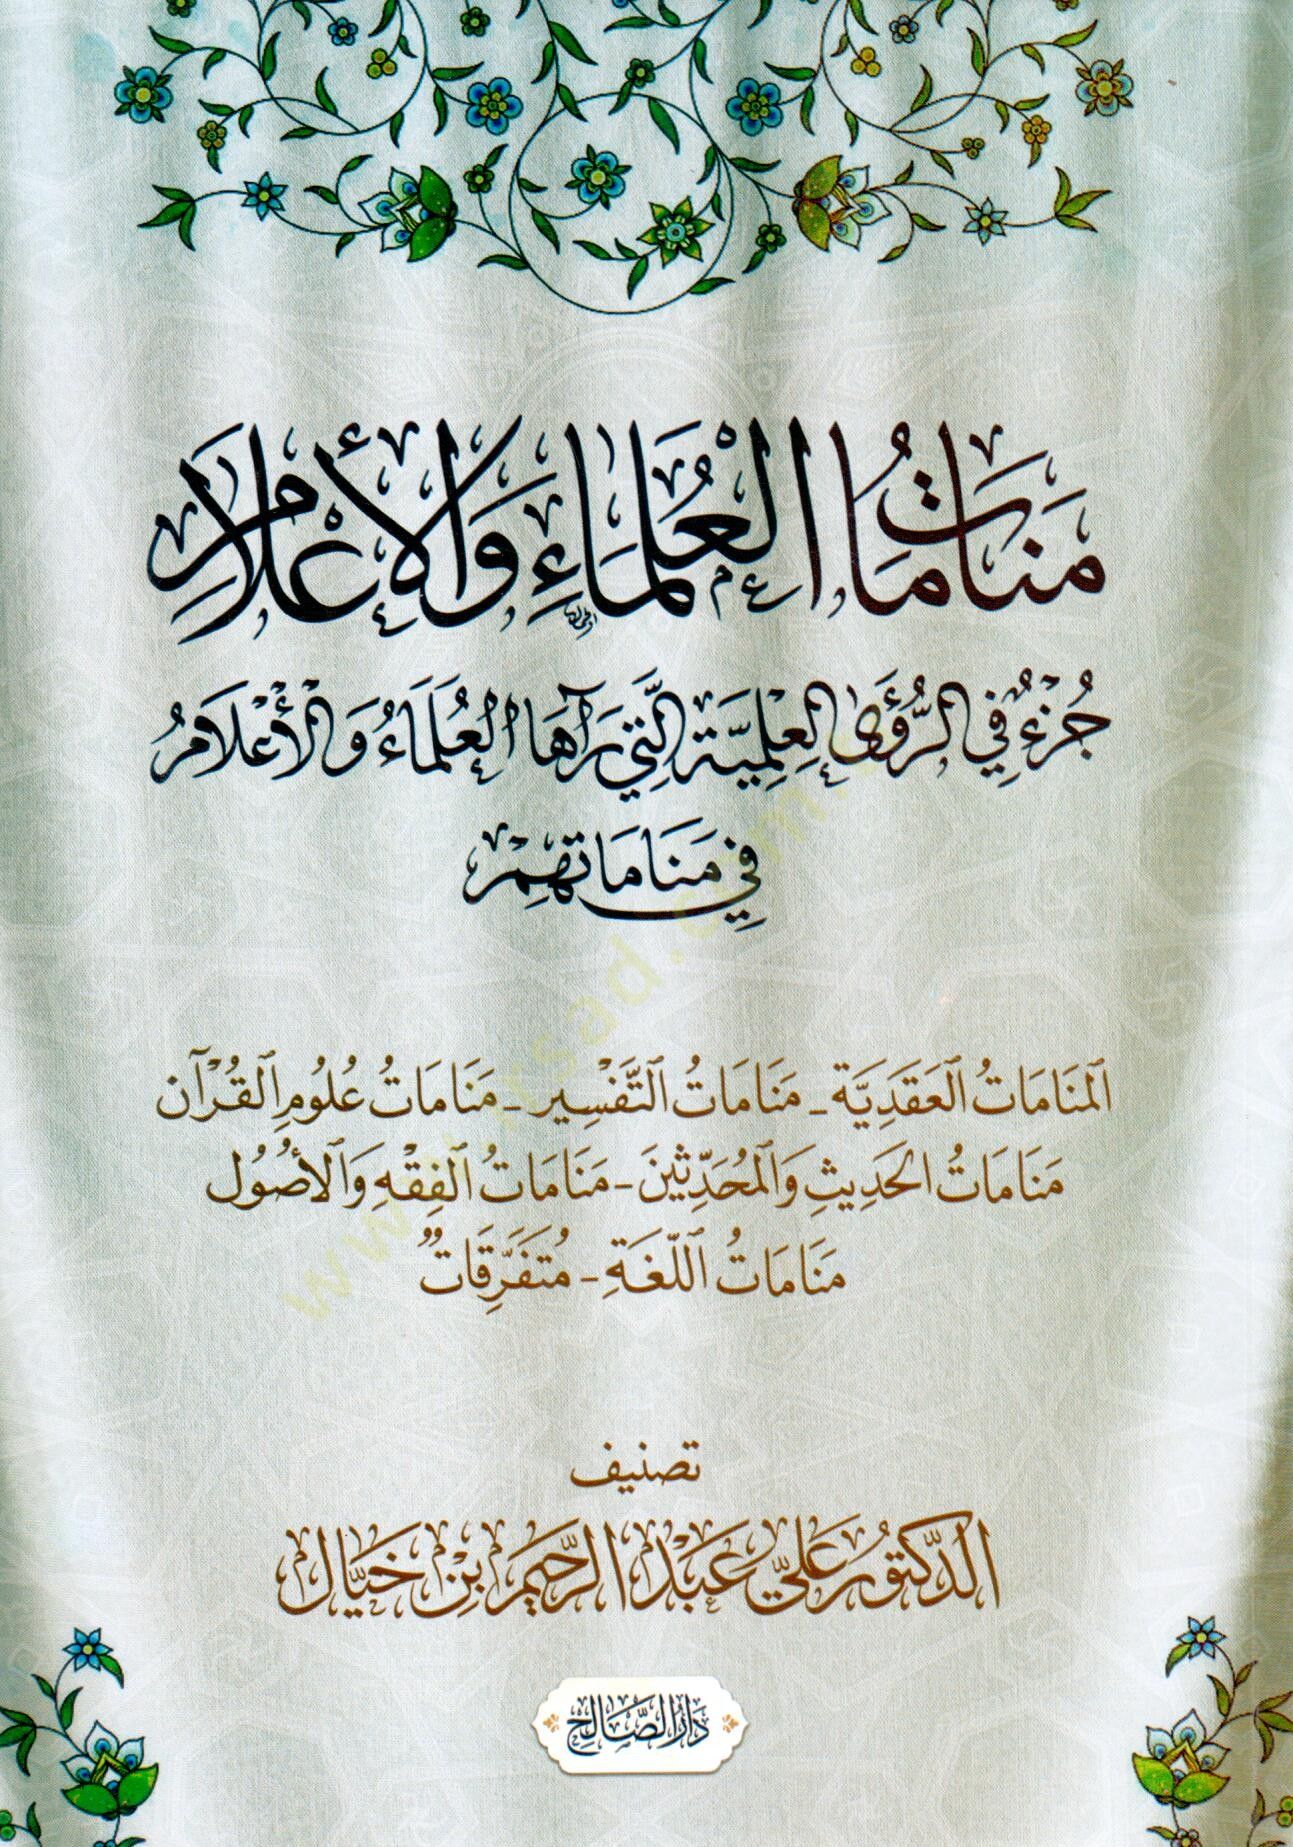 مَنَامَاتُ الْعُلَمَاءِ وَالْأَعْلَامِ
جُزْءٌ فِي الرُّؤَى الْعِلْمِيَّةِ الَّتِي رَآهَا الْعُلَمَاءُ وَالْأَعْلَامُ
فِي مَنَامَاتِهِمْ
الْمَنَامَاتُ الْعَقَدِيَّة - مَنَامَاتُ التَّفْسِير - مَنَامَاتُ عُلُومِ الْقُرْآن
مَنَامَاتُ الحَدِيثِ وَالْمُحَدِّثِينَ - مَنَامَاتُ الْفِقْهِ وَالْأُصُول
مَنَامَاتُ اللُّغَةِ - مُتَفَرِّقَاتٌ
تصنيف
الدكتور علي عبد الرحيم بن خيال
دار الصالح